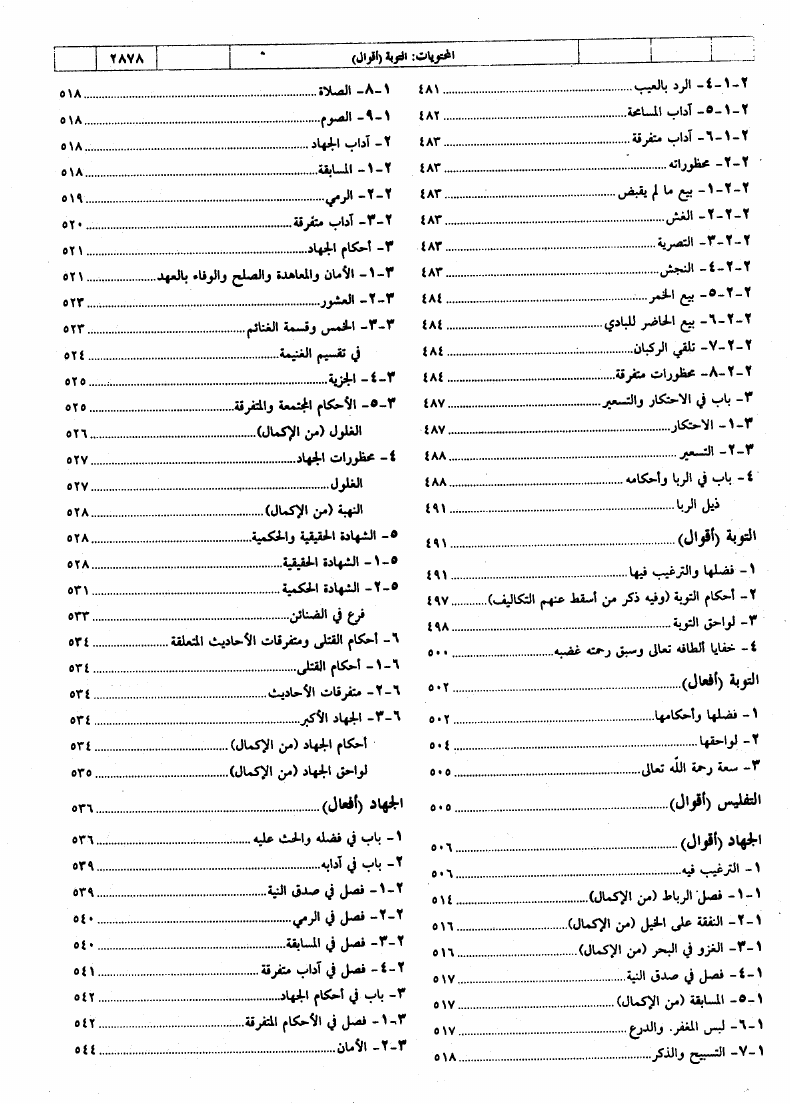 المحتويات: التوبة (أقوال)
٢٨٧٨
٢-١-٤- الرد بالعيب ... ٤٨١
٢-١-٥- آداب المسامحة ... ٤٨٢
٢-١-٦- آداب متفرقة ... ٤٨٣
٢-٢- محظوراته ... ٤٨٣
٢-٢-١- بيع ما لم يقبض ... ٤٨٣
٢-٢-٢- الغش ... ٤٨٣
٢-٢-٣- التصرية ... ٤٨٣
٢-٢-٤- النجش ... ٤٨٣
٢-٢-٥- بيع الخمر ... ٤٨٤
٢-٢-٦- بيع الحاضر للبادي ... ٤٨٤
٢-٢-٧- تلقي الركبان ... ٤٨٤
٢-٢-٨- محظورات متفرقة ... ٤٨٤
٣- باب في الاحتكار والتسعير ... ٤٨٧
٣-١- الاحتكار ... ٤٨٧
٣-٢- التسعير ... ٤٨٨
٤- باب في الربا وأحكامه ... ٤٨٨
ذيل الربا ... ٤٩١
التوبة (أقوال) ... ٤٩١
١- فضلها والترغيب فيها ... ٤٩١
٢- أحكام التوبة (وفيه ذكر من أسقط عنهم التكاليف) ... ٤٩٧
٣- لواحق التوبة ... ٤٩٨
٤- خفايا ألطافه تعالى وسبق رحمته غضبه ... ٥٠٠
التوبة (أفعال) ... ٥٠٢
١- فضلها وأحكامها ... ٥٠٢
٢- لواحقها ... ٥٠٤
٣- سعة رحمة الله تعالى ... ٥٠٥
التفليس (أقوال) ... ٥٠٥
الجهاد (أقوال) ... ٥٠٦
١- الترغيب فيه ... ٥٠٦
١-١- فصل الرباط (من الإكمال) ... ٥١٤
١-٢- النفقة على الخيل (من الإكمال) ... ٥١٦
١-٣- الغزو في البحر (من الإكمال) ... ٥١٦
١-٤- فصل في صدق النية ... ٥١٧
١-٥- المسابقة (من الإكمال) ... ٥١٧
١-٦- لبس المغفر. والدرع ... ٥١٧
١-٧- التسبيح والذكر ... ٥١٨
١-٨- الصلاة ... ٥١٨
١-٩- الصوم ... ٥١٨
٢- آداب الجهاد ... ٥١٨
٢-١- المسابقة ... ٥١٨
٢-٢- الرمي ... ٥١٩
٢-٣- آداب متفرقة ... ٥٢٠
٣- أحكام الجهاد ... ٥٢١
٣-١- الأمان والمعاهدة والصلح والوفاء بالعهد ... ٥٢١
٣-٢- العشور ... ٥٢٣
٣-٣- الخمس وقسمة الغنائم ... ٥٢٣
في تقسيم الغنيمة ... ٥٢٤
٣-٤- الجزية ... ٥٢٥
٣-٥- الأحكام المجتمعة والمتفرقة ... ٥٢٥
الغلول (من الإكمال) ... ٥٢٦
٤- محظورات الجهاد ... ٥٢٧
الغلول ... ٥٢٧
النهبة (من الإكمال) ... ٥٢٨
٥- الشهادة الحقيقية والحكمية ... ٥٢٨
٥-١- الشهادة الحقيقية ... ٥٢٨
٥-٢- الشهادة الحكمية ... ٥٣١
فرع في الضنائن ... ٥٣٣
٦- أحكام القتلى ومتفرقات الأحاديث المتعلقة ... ٥٣٤
٦-١- أحكام القتلى ... ٥٣٤
٦-٢- متفرقات الأحاديث ... ٥٣٤
٦-٣- الجهاد الأكبر ... ٥٣٤
أحكام الجهاد (من الإكمال) ... ٥٣٤
لواحق الجهاد (من الإكمال) ... ٥٣٥
الجهاد (أفعال) ... ٥٣٦
١- باب في فضله والحث عليه ... ٥٣٦
٢- باب في آدابه ... ٥٣٩
٢-١- فصل في صدق النية ... ٥٣٩
٢-٢- فصل في الرمي ... ٥٤٠
٢-٣- فصل في المسابقة ... ٥٤٠
٢-٤- فصل في آداب متفرقة ... ٥٤١
٣- باب في أحكام الجهاد ... ٥٤٢
٣-١- فصل في الأحكام المتفرقة ... ٥٤٢
٣-٢- الأمان ... ٥٤٤